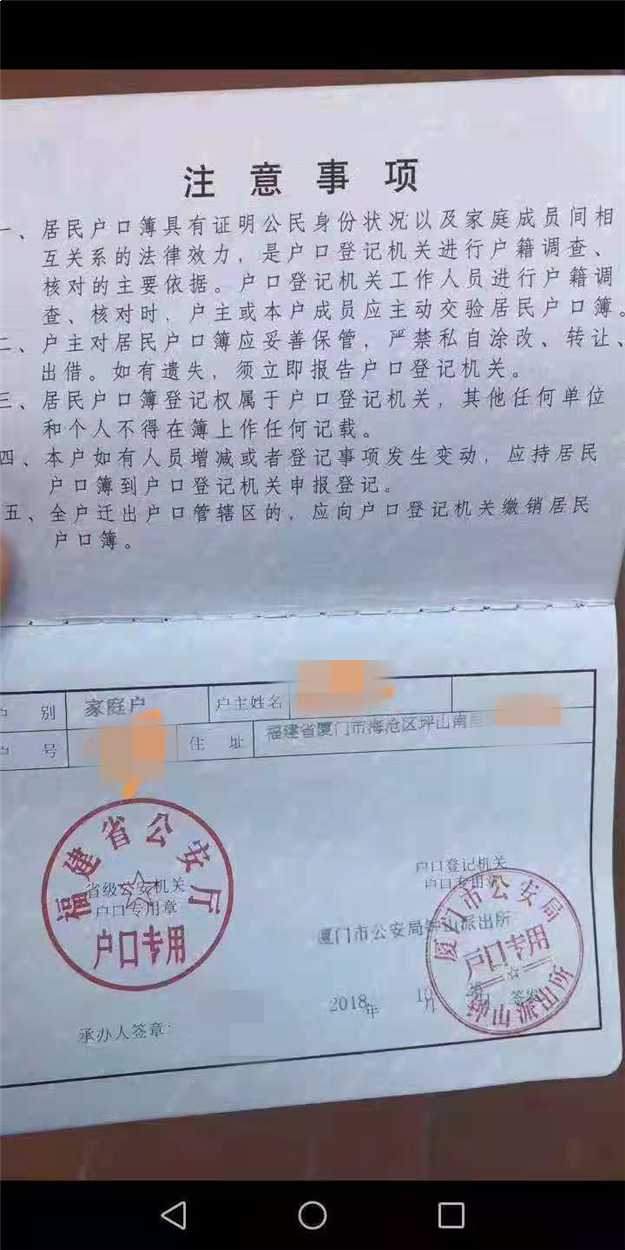 注意事项
一、居民户口簿具有证明公民身份状况以及家庭成员间相
互关系的法律效力，是户口登记机关进行户籍调查、
核对的主要依据。户口登记机关工作人员进行户籍调
查、核对时，户主或本户成员应主动交验居民户口簿。
二、户主对居民户口簿应妥善保管，严禁私自涂改、转让、
出借。如有遗失，须立即报告户口登记机关。
三、居民户口簿登记权属于户口登记机关，其他任何单位
和个人不得在簿上作任何记载。
四、本户如有人员增减或者登记事项发生变动，应持居民
户口簿到户口登记机关申报登记。
五、全户迁出户口管辖区的，应向户口登记机关缴销居民
户口簿。
户别 家庭户 户主姓名
户号 住址 福建省厦门市海沧区坪山南里
福建省公安厅
省级公安机关
户口专用章
户口专用
户口登记机关
户口专用章
厦门市公安局
厦门市公安局钟山派出所
户口专用
钟山派出所
2018年 10月 日 签发
承办人签章：